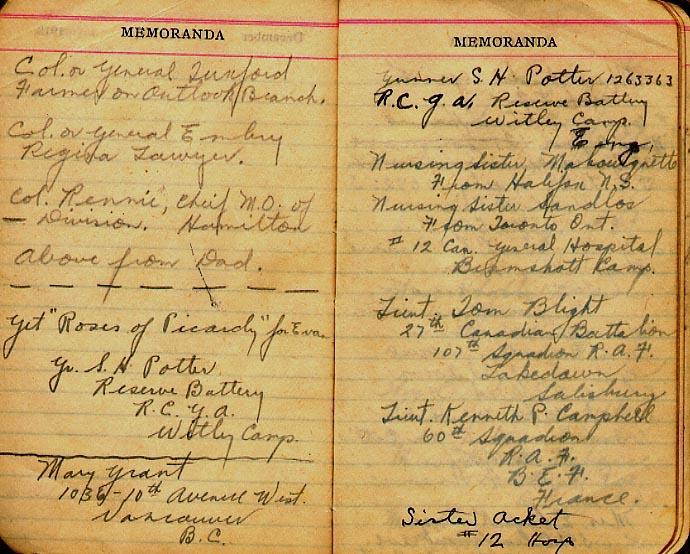 MEMORANDA
Col. or General Tuxford
Farmer on Outlook Branch.
Col. or General Embury
Regina Lawyer.
Col. Rennie, Chief M.O. of
— Division. Hamilton
Above from Dad.
Get "Roses of Picardy" for Evan
Gr. S. H. Potter
Reserve Battery
R. C. G. A.
Witley Camp.
Mary Grant
1036-10th Avenue West.
Vancouver
B.C.
MEMORANDA
Gunner S. H. Potter 1263363
R.C.G.A. Reserve Battery
Witley Camp.
Eng.
Nursing Sister
From Halifax N.S.
Nursing Sister Sandlos
From Toronto Ont.
# 12 Can. General Hospital
Bramshott Camp.
Lieut. Tom Blight
27th Canadian Battalion
107th Squadron R.A.F.
Lakedown
Salisbury
Lieut. Kenneth P. Campbell
60th Squadron
R.A.F.
B.E.F.
France.
Sister Acket
#12 Hosp